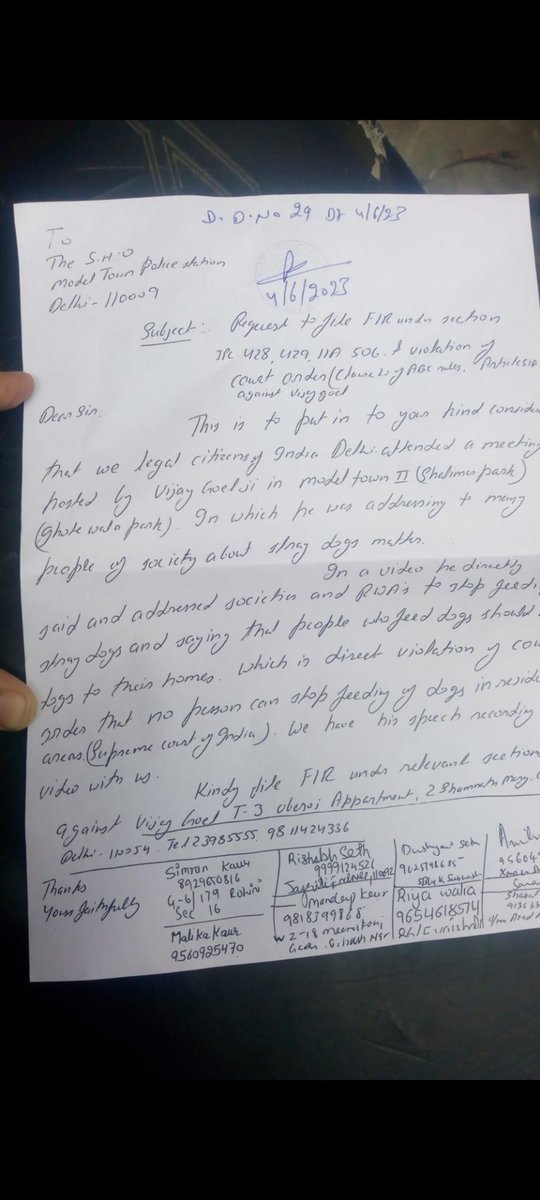 D.D.No 29 Dt 4/6/23
To
The S.H.O
Model Town Police station
Delhi-110009
4/6/2023
Subject:- Request to file FIR under section
IPC 428, 429, 11A 506 & violation of
court order (Clause 20 of ABC rules. Article 51A
against Vijay Goel
Dear Sir,
This is to put in to your kind consider
that we legal citizens of India Delhi attended a meeting
hosted by Vijay Goel ji in model town II (Shalimar park)
(Ghode wala park). In which he was addressing to many
people of society about stray dogs matter.
In a video he directly
said and addressed societies and RWA's to stop feedi
stray dogs and saying that people who feed dogs should
dogs to their homes. Which is direct violation of cou
order that no person can stop feeding of dogs in reside
areas (Supreme court of India). We have his speech recording
video with us.
Kindly file FIR under relevant section
against Vijay Goel T-3 Oberoi Appartment, 2 Shamnath Marg,
Delhi-110054. Tel 23985555, 9811424336
Thanks
Yours faithfully
Simran Kaur
8929650816
G-6/179 Rohini
Sec 16
Malika Kaur
9560925470
Rishabh Seth
9999124521
Mandeep Kaur
9818399868
W2-18
Dushyant Seth
Riya walia
9654618574